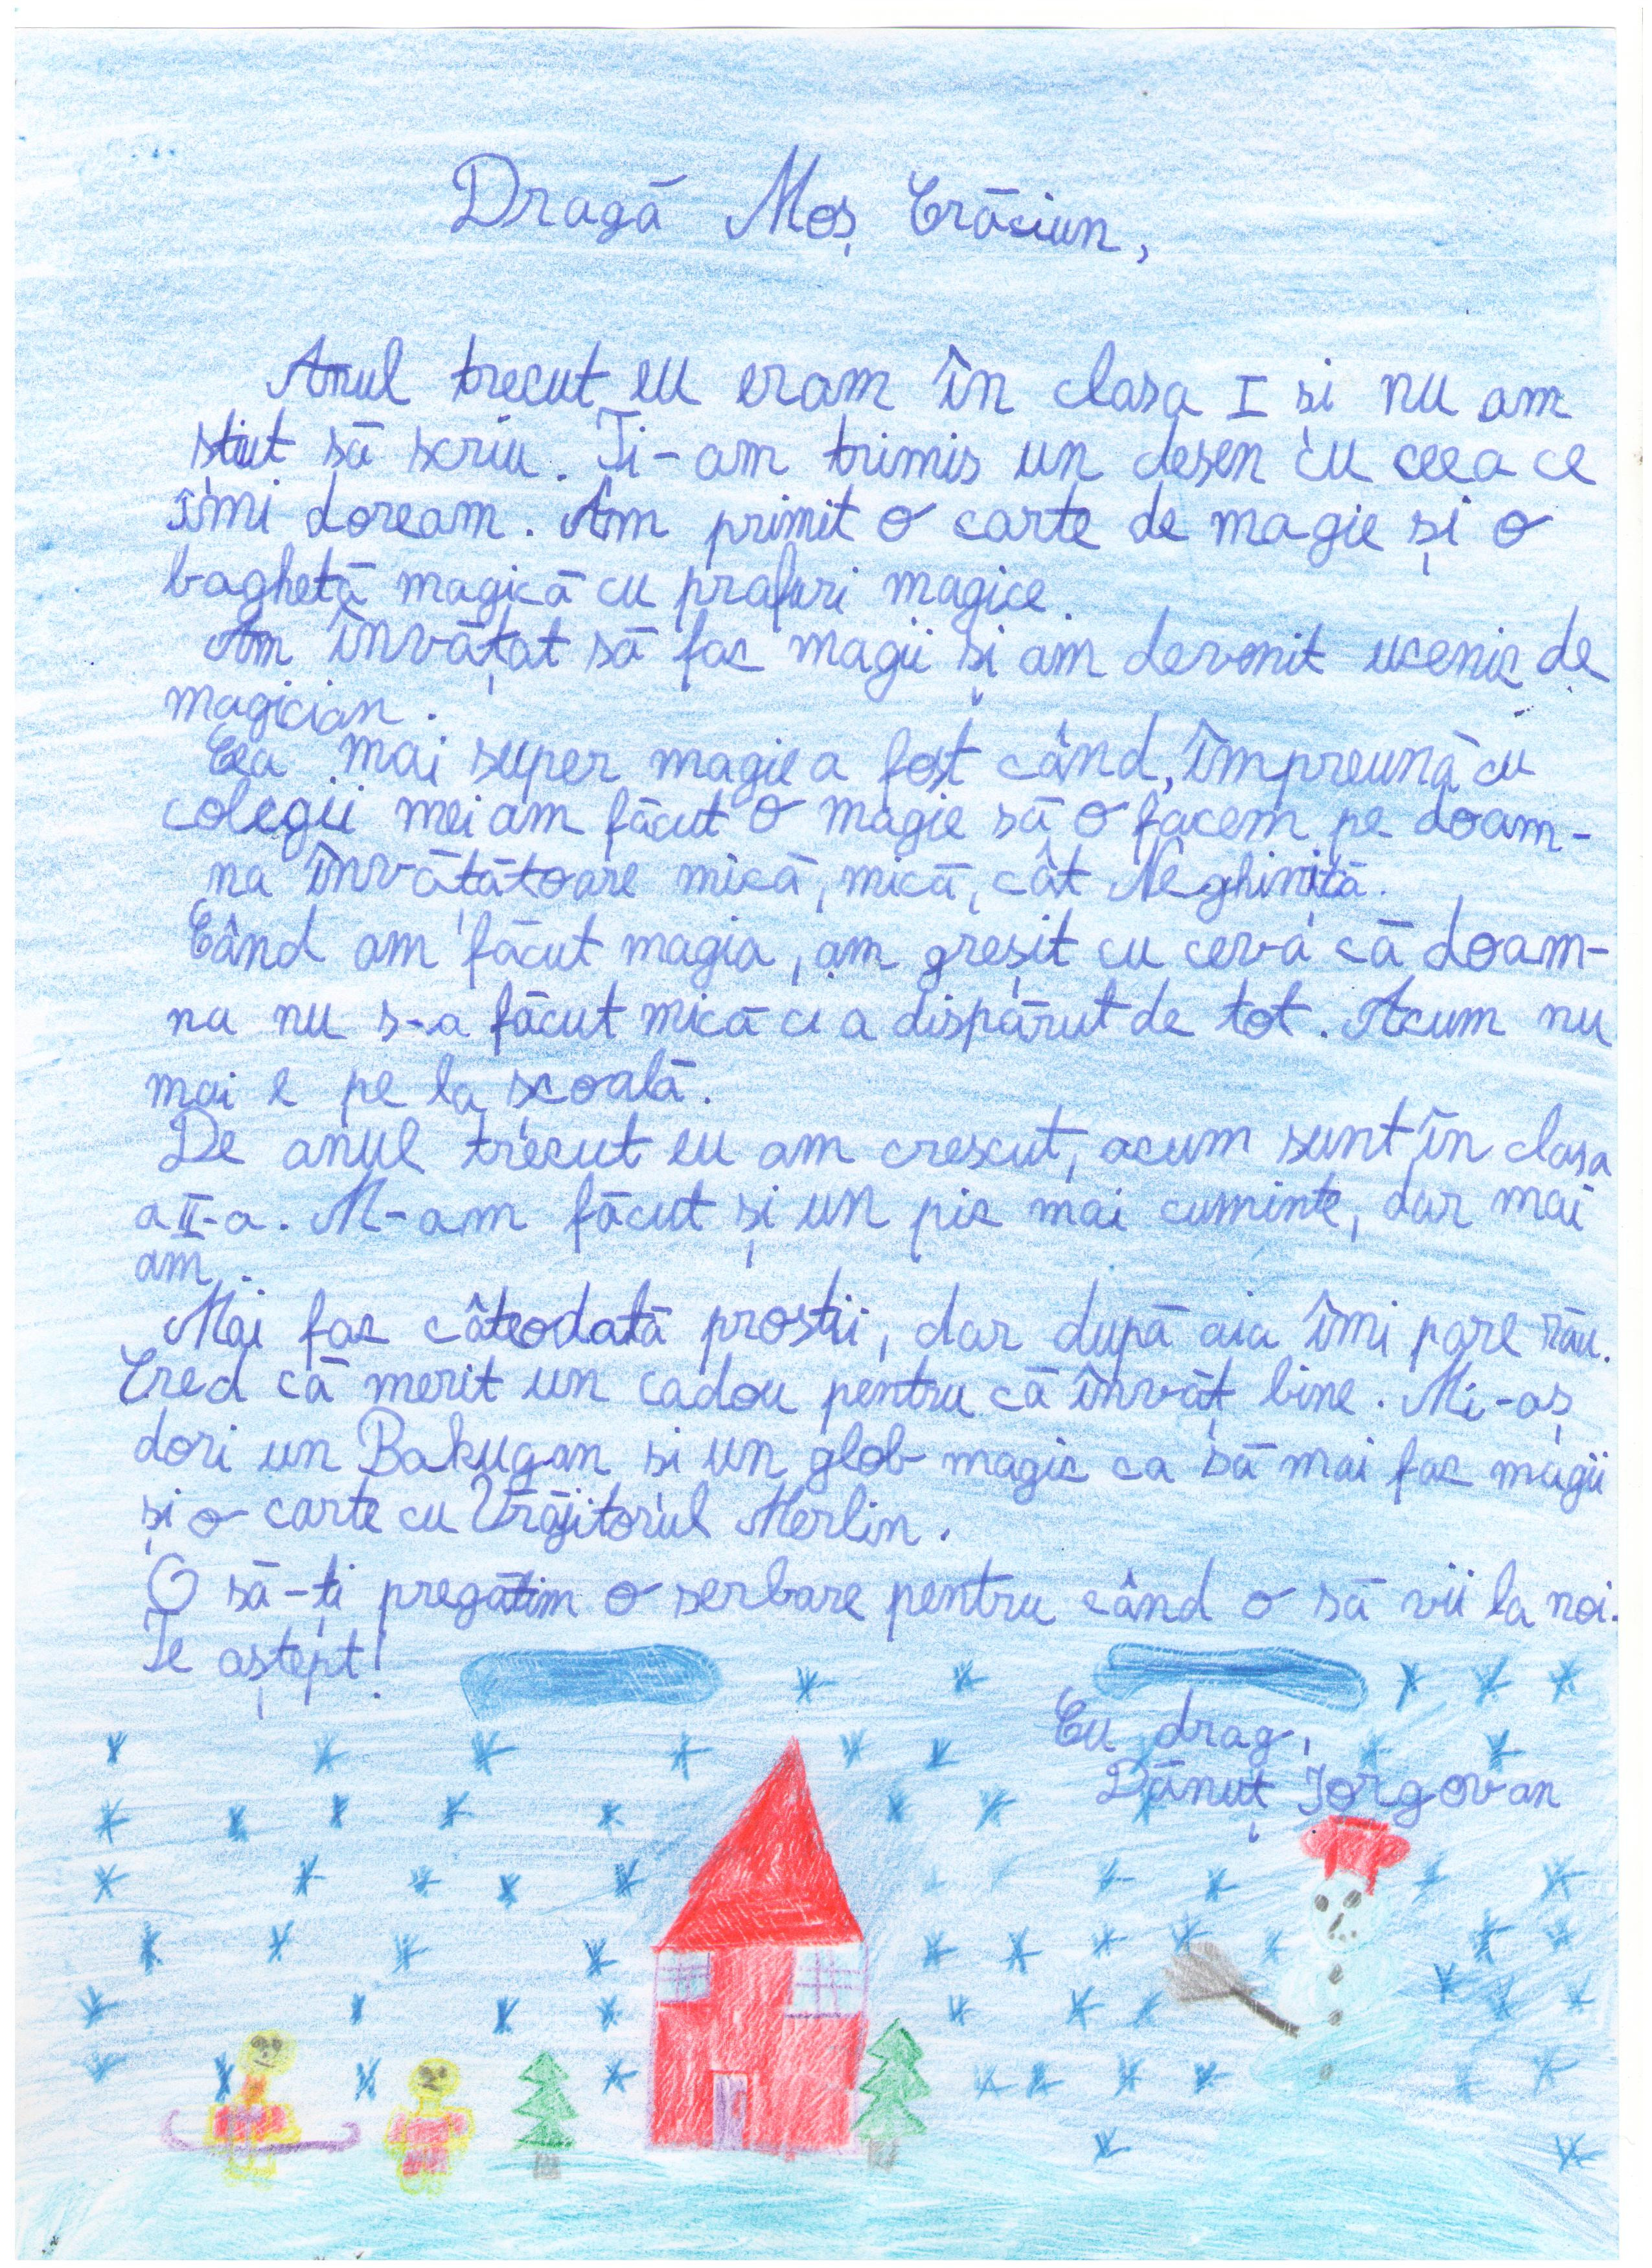 Dragă Moș Crăciun,
Anul trecut eu eram în clasa I și nu am
știut să scriu. Ți-am trimis un desen cu ceea ce
îmi doream. Am primit o carte de magie și o
baghetă magică cu prafuri magice.
Am învățat să fac magii și am devenit ucenic de
magician.
Cea mai super magie a fost când, împreună cu
colegii mei am făcut o magie să o facem pe doam-
na învățătoare mică, mică, cât Neghiniță.
Când am făcut magia, am greșit cu ceva că doam-
na nu s-a făcut mică ci a dispărut de tot. Acum nu
mai e pe la școală.
De anul trecut eu am crescut, acum sunt în clasa
a II-a. M-am făcut și un pic mai cuminte, dar mai
am.
Mai fac câteodată prostii, dar după aia îmi pare rău.
Cred că merit un cadou pentru că învăț bine. Mi-aș
dori un Bakugan si un glob magic ca să mai fac magii
și o carte cu Vrăjitorul Merlin.
O să-ți pregătim o serbare pentru când o să vii la noi.
Te aștept!
Cu drag,
Dănuț Iorgovan